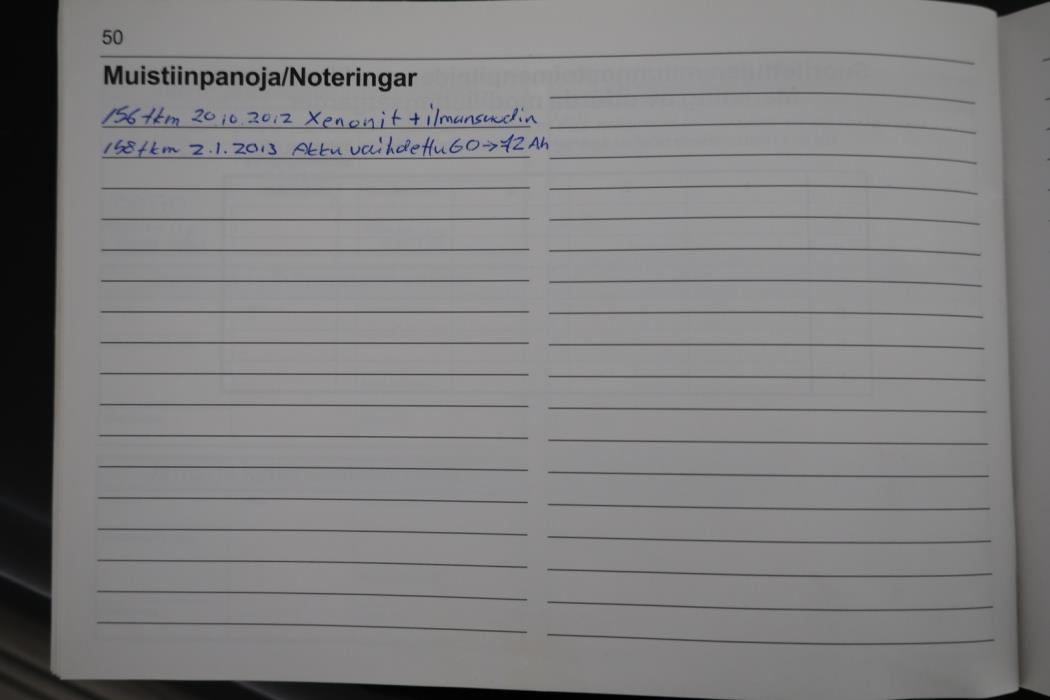 50
Muistiinpanoja/Noteringar
156 tkm 20.10.2012 Xenonit + ilmansuodin
158 tkm 2.1.2013 Akku vaihdettu 60→72 Ah